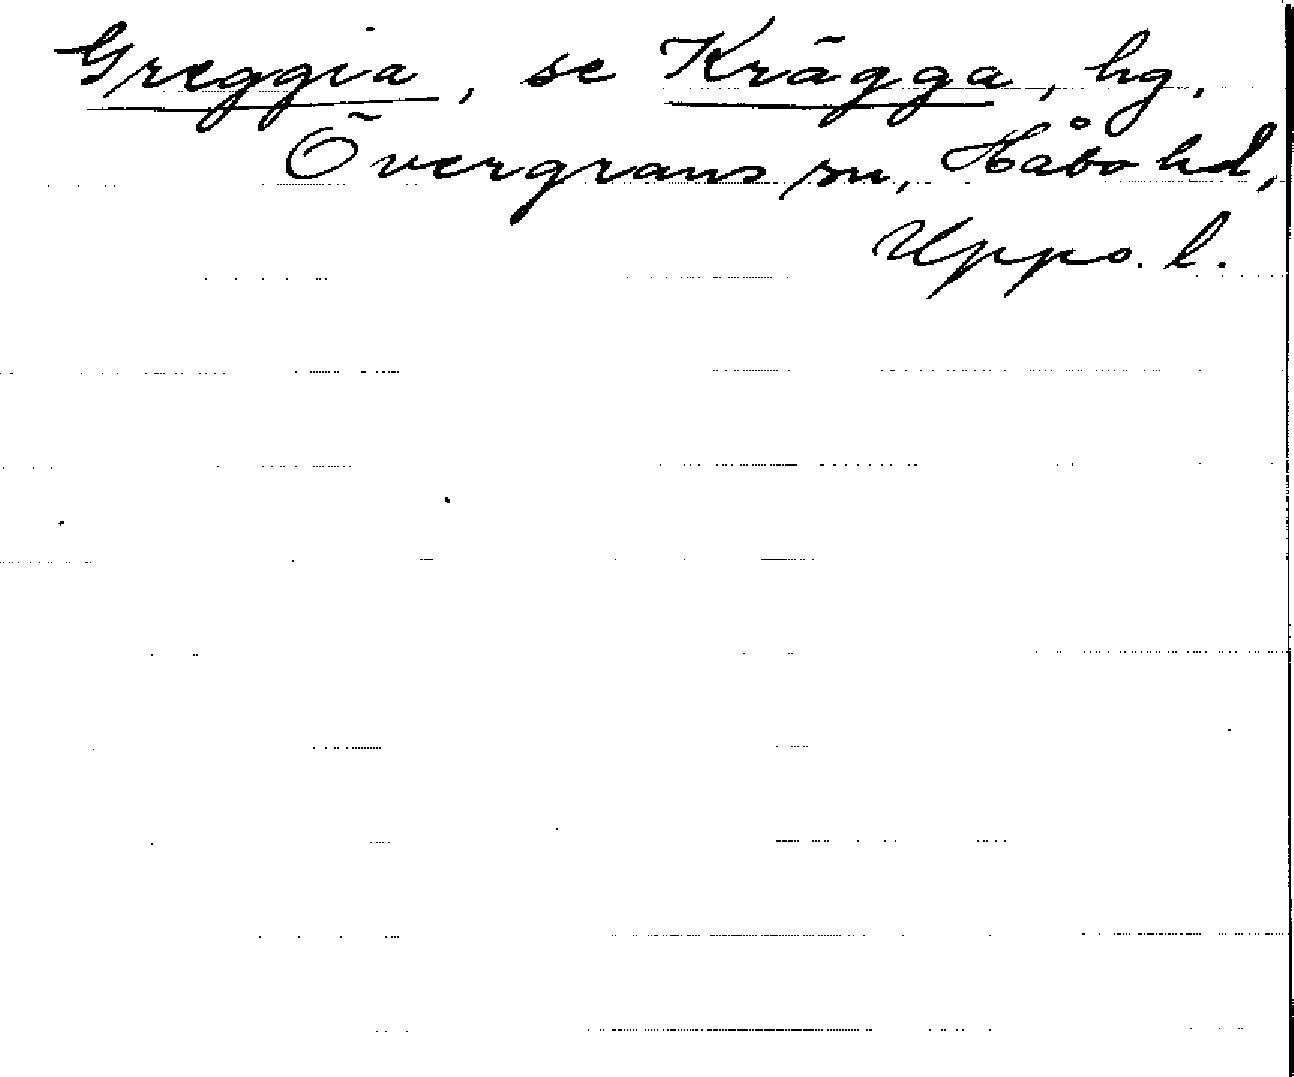 Greggia, se Krägga, hg,
Övergrans sn, Håbo hd,
Upps. l.